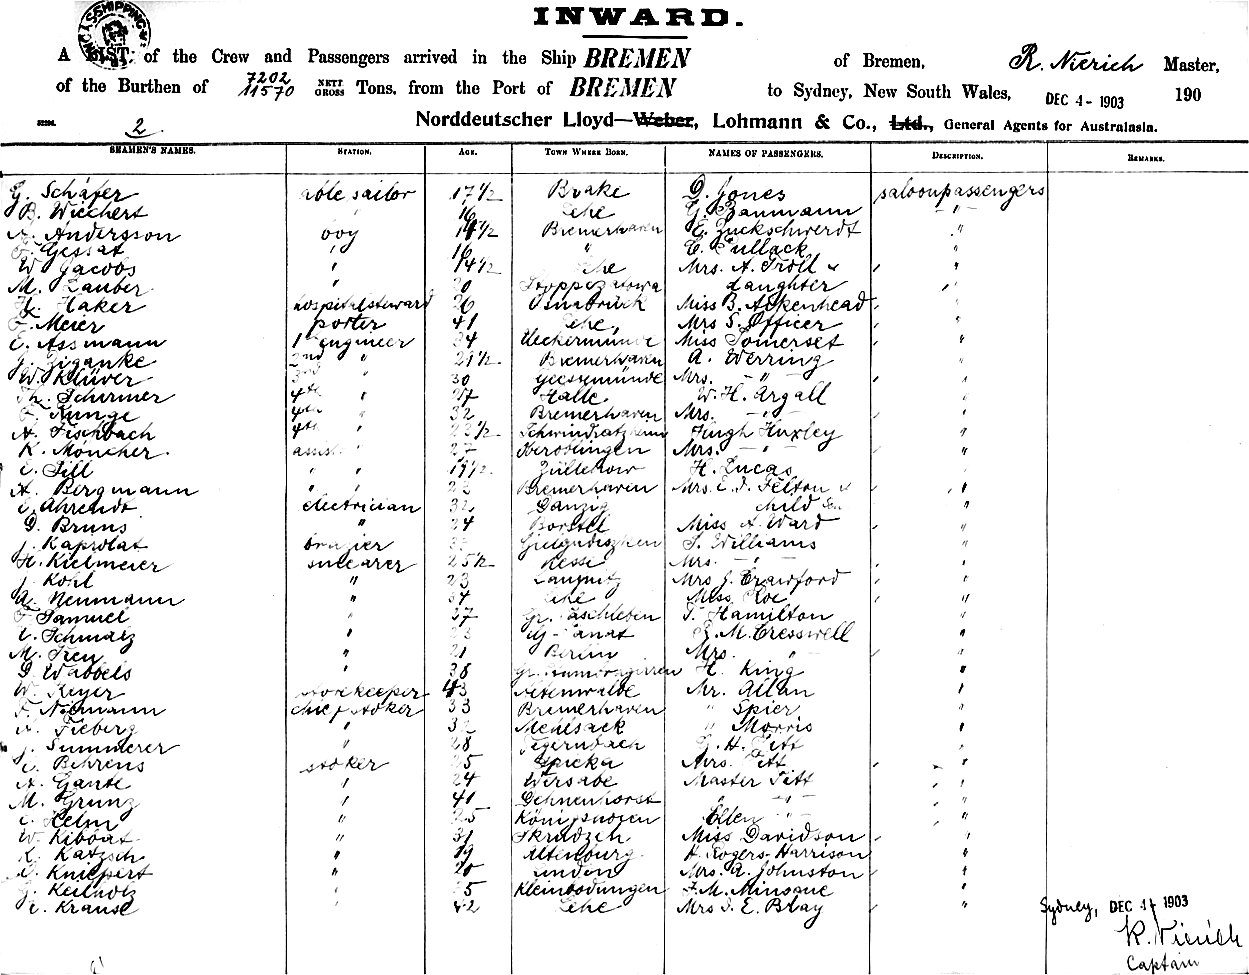 INWARD.
A LIST. of the Crew and Passengers arrived in the Ship BREMEN of Bremen, R. Nierich Master,
of the Burthen of 7202 11570 NETT GROSS Tons, from the Port of BREMEN to Sydney, New South Wales, DEC 4 - 1903 190
2 Norddeutscher Lloyd—Weber, Lohmann & Co., Ltd., General Agents for Australasia.
SEAMEN'S NAMES. STATION. AGE. TOWN WHERE BORN. NAMES OF PASSENGERS. DESCRIPTION. REMARKS.
G. Schäfer able sailor 17 1/2 Brake D. Jones saloonpassengers
B. Wiechert " 16 Lehe G. Baumann "
Andersson boy 14 1/2 Bremerhaven C. Zuckschwerdt "
Gessat " 16 " C. Pullack "
W. Jacobs " 14 1/2 Lehe Mrs. A. Troll & "
M. Zauber 20 daughter "
Haker hospitalsteward 26 Osnabrück Miss B. Aikenhead "
F. Meier porter 41 Lehe, Mrs S. Officer "
C. Assmann 1st engineer 34 Ueckermünde Miss Somerset "
J. Ziganke 2nd " 29 1/2 Bremerhaven A. Werring "
W. Klüver 3rd " 30 Geestemünde Mrs. " "
Th. Schirmer 4th " 27 Halle W. H. Argall "
F. Runge 4th " 32 Bremerhaven Mrs. " "
A. Fischbach 4th " 23 1/2 Hugh Huxley "
K. Möncher. assist. " 27 Oberoblingen Mrs. " "
C. Sill " " 19 1/2 Züllchow H. Lucas "
A. Bergmann " " 23 Bremerhaven Mrs. E. J. Felton & "
C. Ahrendt electrician 32 Danzig child "
D. Bruns " 24 Borstel Miss A. Ward "
J. Kaprolat brazier S. Williams "
H. Kielmeier smearer 25 1/2 Mrs. " "
J. Kohl " 23 Mrs J. Crawford "
A. Neumann " 34 Lehe Miss Roe "
F. Samuel " 37 T. Hamilton "
C. Schmalz " 23 R. M. Cresswell "
M. Treu " 21 Berlin Mrs. " "
G. Wabbels " 38 H. King "
W. Reyer storekeeper 43 Altenwalde Mr. Allan "
F. Niemann chief stoker 33 Bremerhaven " Spier "
A. Fieberg " 32 Mehlsack " Morris "
J. Summerer " 28 Tegernbach G. H. Titt "
C. Behrens stoker 25 Spieka Mrs. Titt "
A. Gante " 24 Wersabe Master Titt "
M. Grunz " 41 Dehnenhorst " " "
C. Helm " 25 Ellen " "
W. Kibbat " 31 Miss Davidson "
K. Katzsch " 19 Altenburg H. Rogers-Harrison "
A. Kniepert " 20 Linden Mrs. A. Johnston "
G. Keilholz " 25 Kleinbodungen F. M. Minsane "
C. Krause " 42 Lehe Mrs J. E. Blay "
Sydney, DEC 4 1903
R. Nierich
Captain